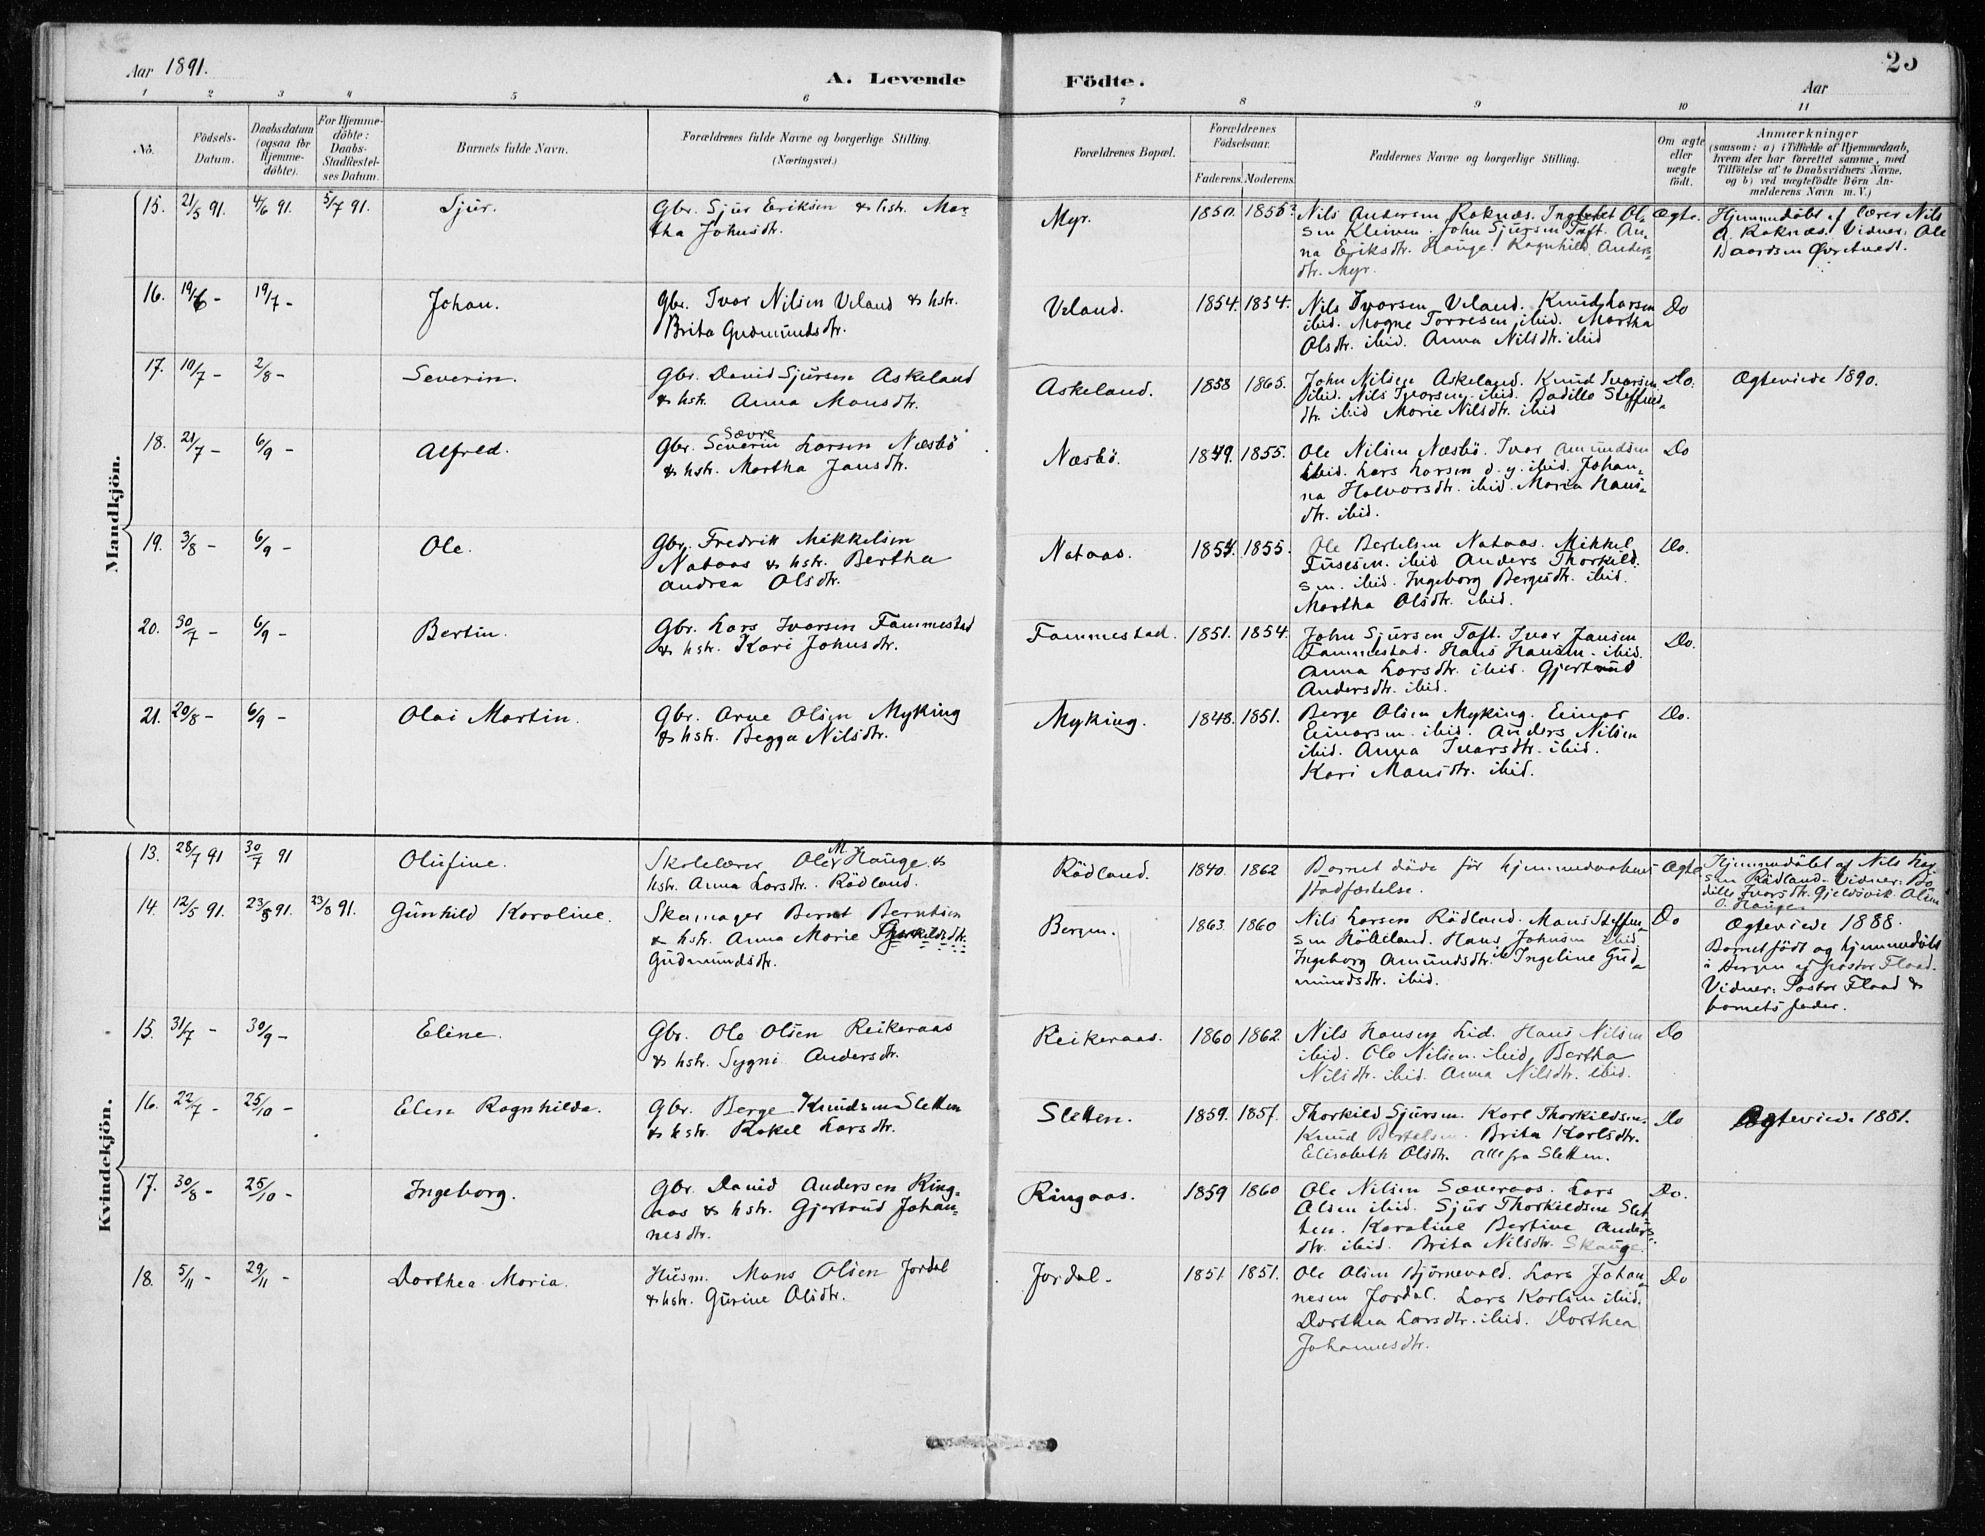 Aar 1891.
A. Levende
Födte.
25
Aar
1 2 3 4 5 6 7 8 9 10 11
No.
Födsels-
Datum.
Daabsdatum
(ogsaa for
Hjemme-
döbte).
For Hjemme-
döbte:
Daabs-
Stadfæstel-
ses Datum.
Barnets fulde Navn.
Forældrenes fulde Navne og borgerlige Stilling
(Næringsvei.)
Forældrenes Bopæl.
Forældrenes
Födselsaar.
Faderens. Moderens.
Faddernes Navne og borgerlige Stilling.
Om ægte
eller
uægte
födt.
Anmærkninger
(saasom: a) i Tilfælde af Hjemmedaab,
hvem der har forrettet samme, med
Tilföielse af to Daabsvidners Navne,
og b) ved uægtefödte Börn An-
melderens Navn m. V.)
Mandkjön.
15. 21/5 91. 4/6 91. 5/7 91. Sjur.
Gbr. Sjur Eriksen & hstr. Mar-
tha Johnsdtr.
Myr. 1850. 1855?
Nils Andersen Raknæs. Ingebret Ol-
sen Kleiven. John Sjursen Toft. An-
na Eriksdtr. Hauge. Ragnhild Anders-
dtr. Myr.
Ægte.
Hjemmedöbt af lærer Nils
A. Raknæs. Vidner: Ole
Baardsen Øvretvedt.
16. 19/6 - 19/7 - Johan.
Gbr. Ivar Nilsen Veland & hstr.
Brita Gudmundsdtr.
Veland. 1854. 1854.
Nils Ivarsen Veland. Knud Larsen
ibid. Mogne Torresen ibid. Martha
Olsdtr. ibid. Anna Nilsdtr. ibid
Do
17. 10/7 - 2/8 - Severin.
Gbr. David Sjursen Askeland
& hstr. Anna Monsdtr.
Askeland. 1858 1865.
John Nilsen Askeland. Knud Ivarsen
ibid. Nils Ivarsen. ibid. Bodille Steffens-
dtr. ibid Marie Nilsdtr. ibid
Do.
Ægteviede 1890.
18. 21/7 - 6/9 - Alfred.
Sævre
Gbr. Severin Larsen Næsbö
& hstr. Martha Jansdtr.
Næsbö. 1849. 1855.
Ole Nilsen Næsbö. Ivar Amundsen
ibid. Lars Larsen d. y. ibid. Johan-
na Halvorsdtr. ibid. Maria Hans-
dtr. ibid.
Do
19. 3/8 - 6/9 - Ole.
Gbr. Fredrik Mikkelsen
Nataas & hstr. Bertha
Andrea Olsdtr.
Nataas. 1854. 1855.
Ole Bertelsen Nataas. Mikkel
Fusesen. ibid Anders Thorkild-
sen. ibid. Ingeborg Bergesdtr. ibid.
Martha Olsdtr. ibid.
Do.
20. 30/7 - 6/9 - Bertin.
Gbr. Lars Ivarsen Fammestad
& hstr. Kari Johnsdtr.
Fammestad. 1851. 1854.
John Sjursen Toft. Ivar Jansen
Fammestad. Hans Hansen. ibid.
Anna Larsdtr. ibid. Gjertrud
Andersdtr. ibid.
Do.
21. 20/8 - 6/9 - Olai Martin.
Gbr. Arne Olsen Myking
& hstr. Begga Nilsdtr.
Myking. 1848. 1851.
Berge Olsen Myking. Einar
Einarsen. ibid. Anders Nilsen
ibid. Anna Ivarsdtr. ibid.
Kari Mansdtr. ibid.
Do.
Kvindekjön.
13. 28/7 91 30/7 91 Olufine.
Skolelærer Ole M. Hauge &
hstr. Anna Larsdtr. Rödland.
Rödland. 1840. 1862
Barnet döde för hjemmedaabens
stadfæstelse.
Ægte
Hjemmedöbt af Nils Lar-
sen Rödland. Vidner: Bo-
dille Ivarsdtr. Gjeldsvik. Oline
O. Hauge.
14. 12/5 91. 23/8 91. 23/8 91. Gunhild Karoline.
Skomager Bernt Berntsen
& hstr. Anna Marie Thorkildsdtr.
Gudmundsdtr.
Bergen. 1863. 1860
Nils Larsen Rödland. Mans Steffen-
sen Röbeland. Hans Johnsen ibid
Ingeborg Amundsdtr. & Ingeline Gud-
mundsdtr. ibid.
Do
Ægteviede 1888.
Barnet födt og hjemmedöbt
i Bergen af pastor Flood.
Vidner: Pastor Flood &
barnets fader.
15. 31/7 - 30/9 - Eline.
Gbr. Ole Olsen Reikeraas
& hstr. Sygni Andersdtr.
Reikeraas. 1860 1862.
Nils Hansen Lid. Hans Nilsen
ibid. Ole Nilsen. ibid. Bertha
Nilsdtr. ibid. Anna Nilsdtr. ibid.
Do
16. 22/7 - 25/10 - Elen Ragnhilda.
Gbr. Berge Knudsen Sletten
& hstr. Rakel Larsdtr.
Sletten. 1859. 1857.
Thorkild Sjursen. Karl Thorkildsen.
Knud Bertelsen. Brita Karlsdtr.
Elisabeth Olsdtr. alle fra Sletten.
Do
Ægteviede 1881.
17. 30/8 - 25/10 - Ingeborg.
Gbr. David Andersen Ring-
aas & hstr. Gjertrud Johan-
nesdtr.
Ringaas. 1859 1860
Ole Nilsen Sæveraas. Lars
Olsen ibid. Sjur Thorkildsen Slet-
ten. Karoline Bertine Anders-
dtr. ibid. Brita Nilsdtr. Skauge.
Do.
18. 5/11 - 29/11 - Dorthea Maria.
Husm. Mons Olsen Jordal
& hstr. Gurine Olsdtr.
Jordal. 1851 1851.
Ole Olsen Björnevold. Lars Johan-
nesen Jordal. Lars Karlsen ibid.
Dorthea Larsdtr. ibid. Dorthea
Johannesdtr.
Do